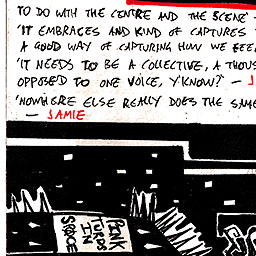 TO DO WITH THE CENTRE AND THE SCENE -
'IT EMBRACES AND KIND OF CAPTURES
A GOOD WAY OF CAPTURING HOW WE FEE
'IT NEEDS TO BE A COLLECTIVE, A THOUS
OPPOSED TO ONE VOICE, Y'KNOW?' - J
'NOWHERE ELSE REALLY DOES THE SAME
- JAMIE
PINK
TURDS
IN
SPACE